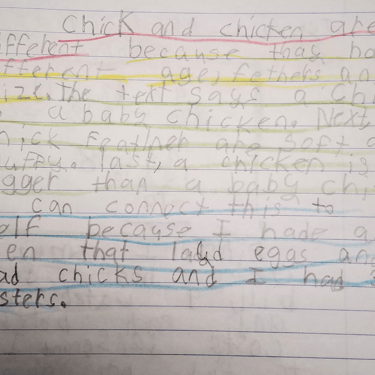 Chick and chicken are
ifferent because thay ha
fferent age, fethers an
ize. The text says a Chi
a baby chicken. Next,
hick Feather are soft a
luffy. last, a chicken is
igger than a baby chi
I can connect this to
elf because I hade a
en that layd eggs and
ad chicks and I had 3
sters.